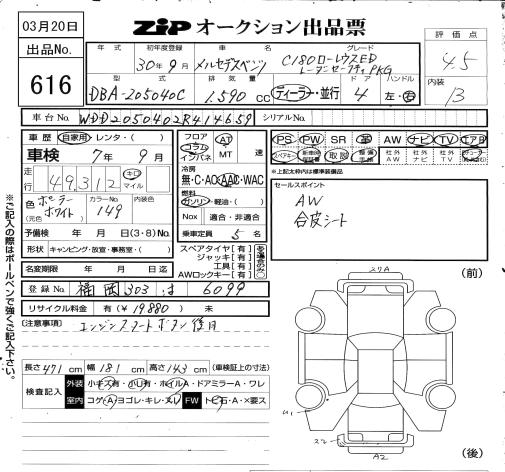 03月20日
ZIP オークション出品票
出品No.
616
年式 初年度登録 車名 グレード
30年9月 メルセデスベンツ C180ローレウスED
レーダーセーフティPKG
評価点
4.5
内装
B
型式 排気量 ドア ハンドル
DBA-205040C 1.590 cc ディーラー・並行 4 左・右
車台No. WDD2050402R414659 シリアルNo.
車歴 自家用・レンタ・( )
車検 7年 9月
走行 49,312 キロ マイル
色 ポーラーホワイト カラーNo. 149
(元色)
予備検 年 月 日(3・8)No.
形状 キャンピング・放宣・事務室・( )
名変期限 年 月 日迄
フロア コラム インパネ AT MT 速
冷房
無・C・AC・AAC・WAC
燃料
ガソリン・軽油・( )
Nox 適合・非適合
乗車定員 5 名
スペアタイヤ【有】
ジャッキ【有】
工具【有】
AWロックキー【有】
ある場合のみ○
PS PW SR 革 AW ナビ TV エアB
スペアキー 取説 整備手帳 社外AW 社外ナビ 社外TV
※上記太わく内は標準装備品
セールスポイント
AW
合皮シート
登録No. 福岡 303 は 6099
リサイクル料金 有(¥19,880) 未
(注意事項) エンジンスタートボタン後日
長さ 471 cm 幅 181 cm 高さ 143 cm (車検証上の寸法)
検査記入 外装 小キズ有・小凹有・ホイルA・ドアミラーA・ワレ
室内 コゲ(A)ヨゴレ・キレ・スレ FW トビ石・A・×要ス
※ご記入の際はボールペンで強くご記入下さい。
(前)
(後)
U1
A2